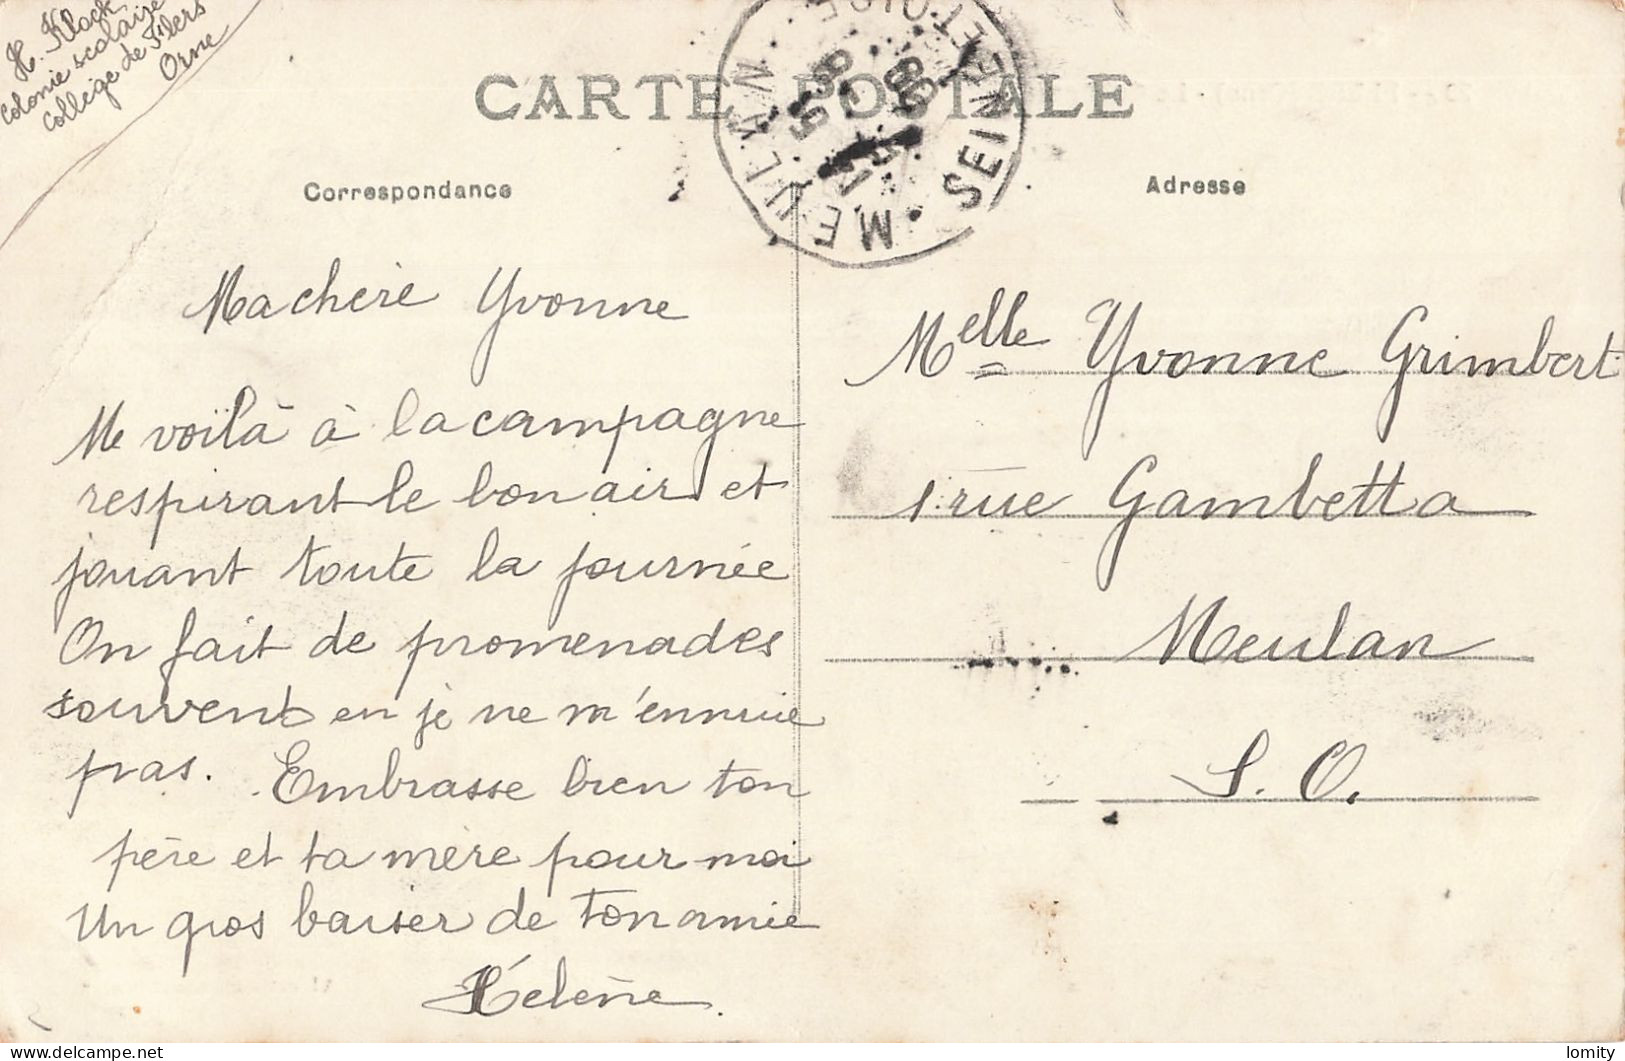 H. Klock
Colonie scolaire
Collège de Flers
Orne
CARTE POSTALE
MEULAN
SEINE-ET-OISE
Correspondance
Adresse
Ma chère Yvonne
Me voilà à la campagne
respirant le bon air et
jouant toute la journée
On fait de promenades
souvent en je ne m'ennuie
pas. Embrasse bien ton
père et ta mère pour moi
Un gros baiser de ton amie
Hélène.
Melle Yvonne Grimbert
1 rue Gambetta
Meulan
S. O.
lomity